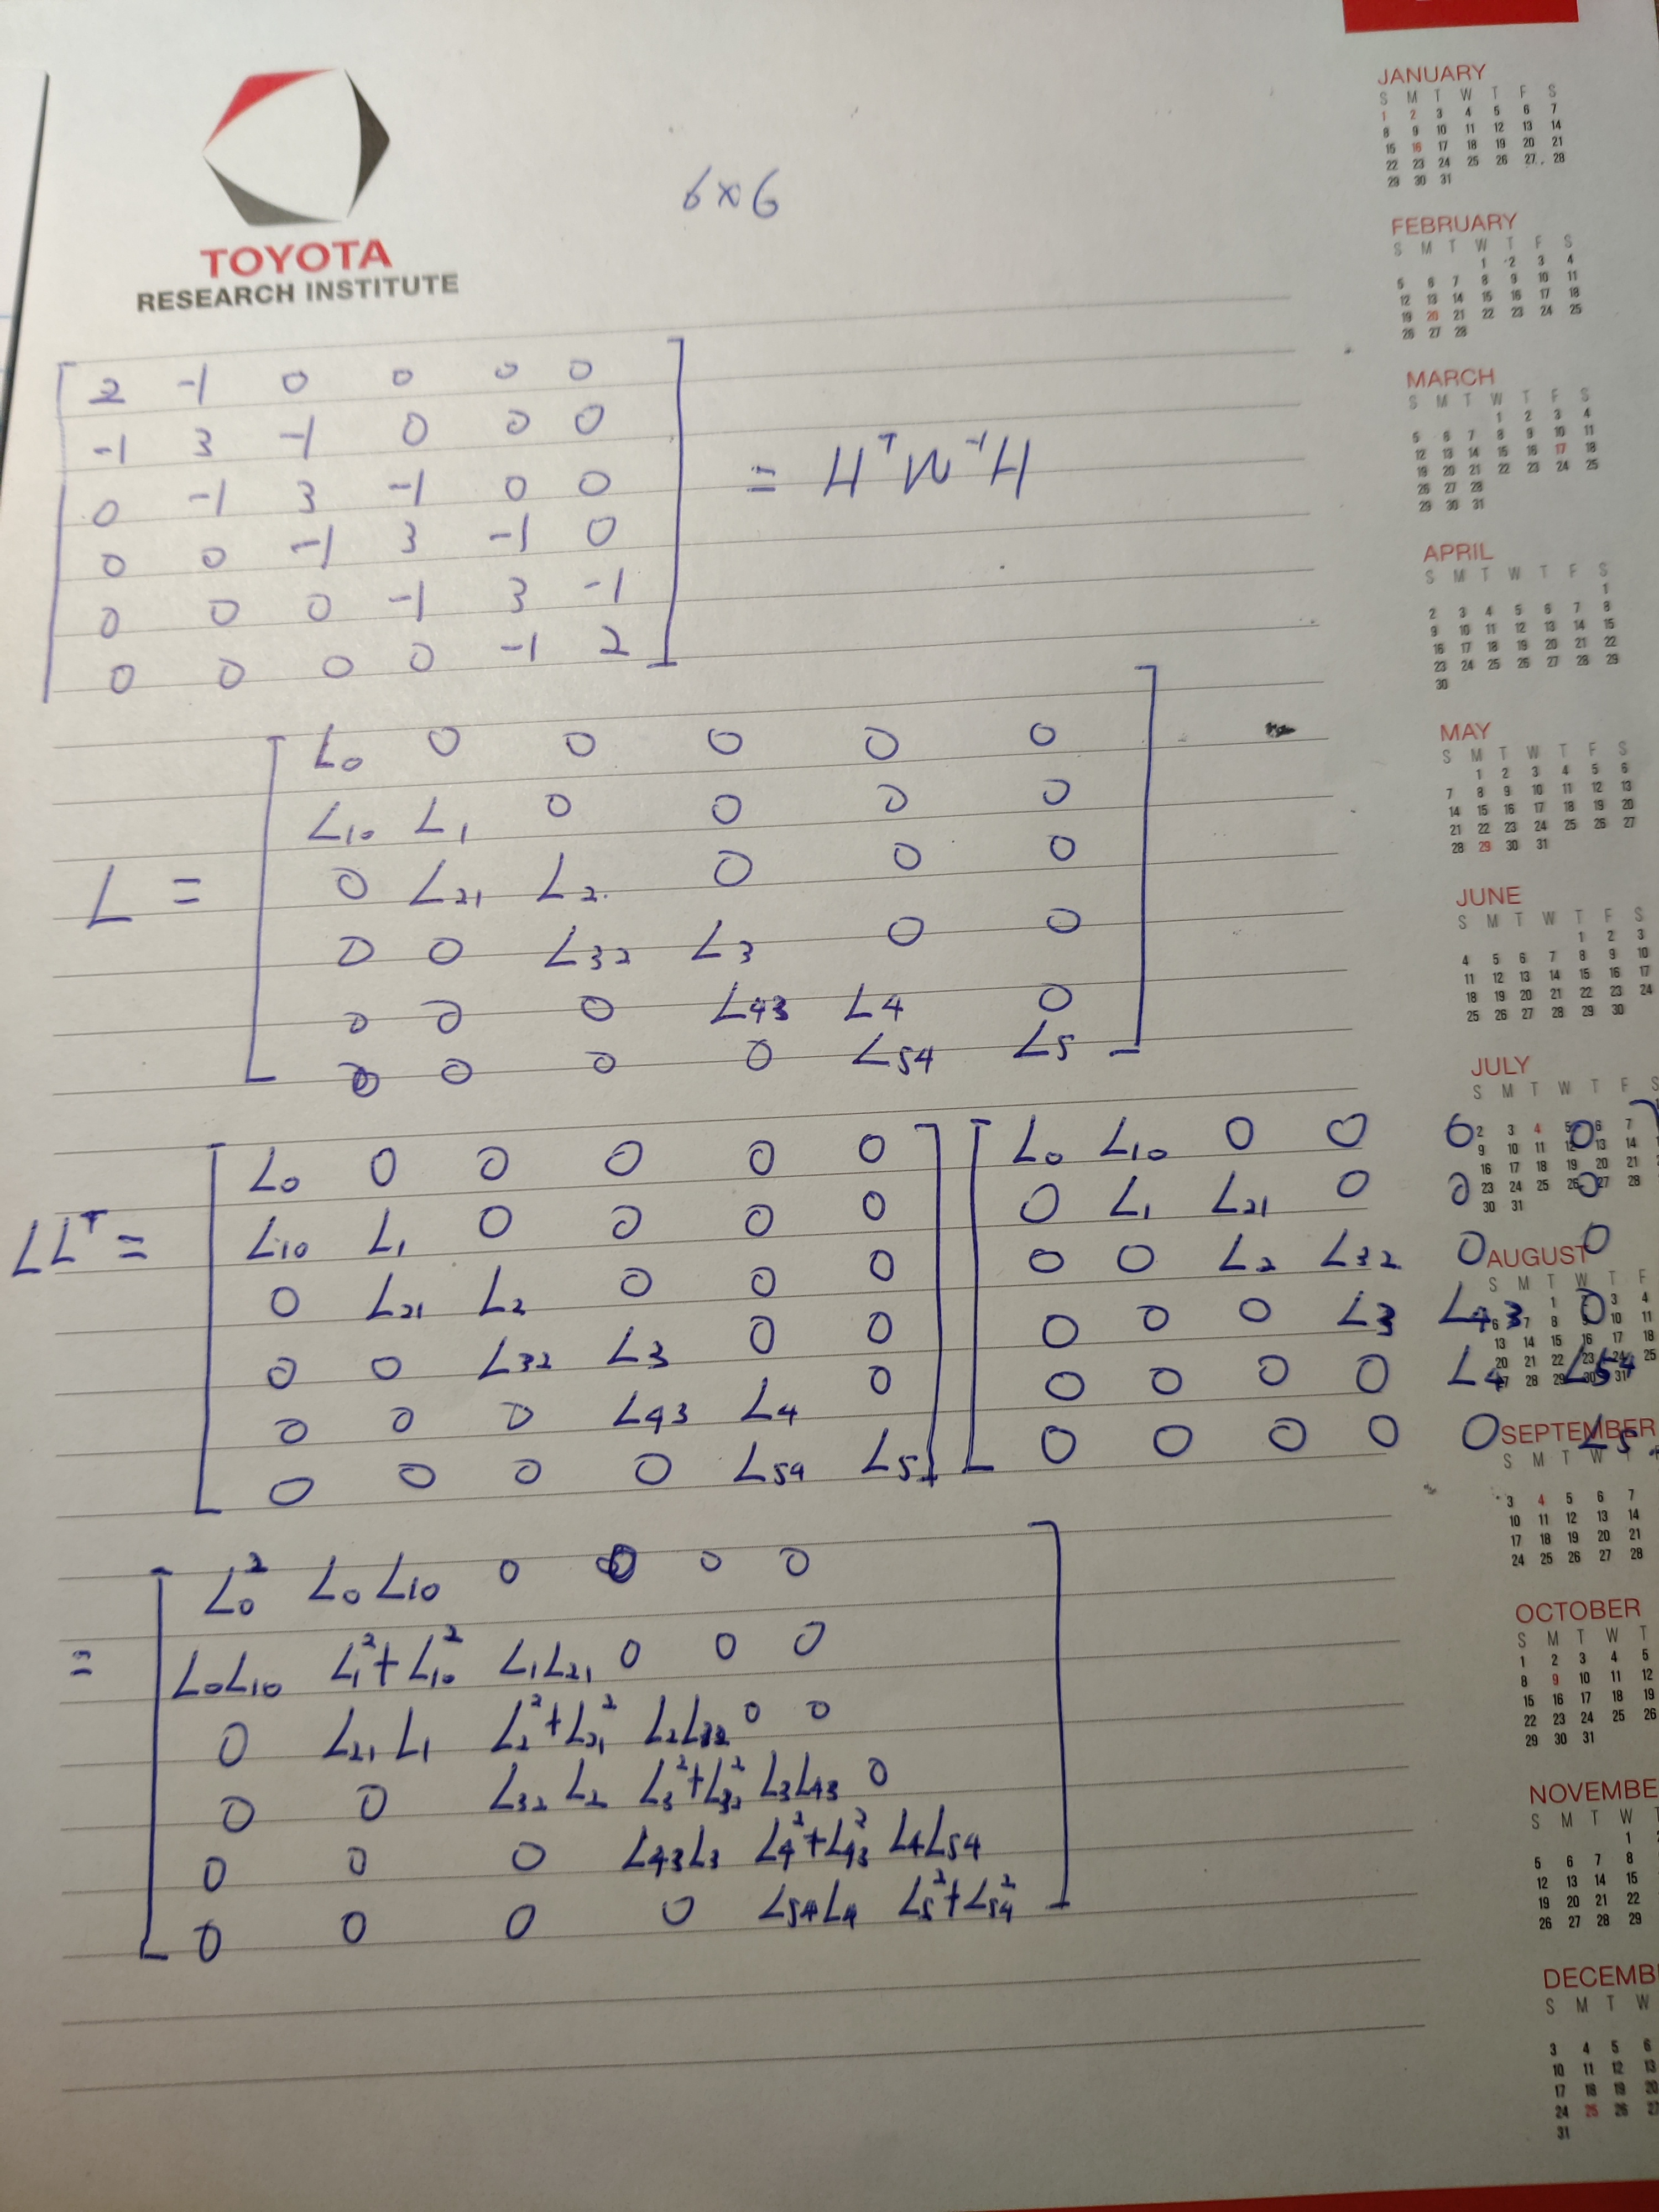 TOYOTA
RESEARCH INSTITUTE
6×6
2 -1 0 0 0 0
-1 3 -1 0 0 0
0 -1 3 -1 0 0 = HᵀW⁻¹H
0 0 -1 3 -1 0
0 0 0 -1 3 -1
0 0 0 0 -1 2
L₀ 0 0 0 0 0
L₁₀ L₁ 0 0 0 0
L = 0 L₂₁ L₂ 0 0 0
0 0 L₃₂ L₃ 0 0
0 0 0 L₄₃ L₄ 0
0 0 0 0 L₅₄ L₅
L₀ 0 0 0 0 0 L₀ L₁₀ 0 0 0 0
LLᵀ = L₁₀ L₁ 0 0 0 0 0 L₁ L₂₁ 0 0 0
0 L₂₁ L₂ 0 0 0 0 0 L₂ L₃₂ 0 0
0 0 L₃₂ L₃ 0 0 0 0 0 L₃ L₄₃ 0
0 0 0 L₄₃ L₄ 0 0 0 0 0 L₄ L₅₄
0 0 0 0 L₅₄ L₅ 0 0 0 0 0 L₅
L₀² L₀L₁₀ 0 0 0 0
= L₀L₁₀ L₁²+L₁₀² L₁L₂₁ 0 0 0
0 L₂₁L₁ L₂²+L₂₁² L₂L₃₂ 0 0
0 0 L₃₂L₂ L₃²+L₃₂² L₃L₄₃ 0
0 0 0 L₄₃L₃ L₄²+L₄₃² L₄L₅₄
0 0 0 0 L₅₄L₄ L₅²+L₅₄²
JANUARY
S M T W T F S
1 2 3 4 5 6 7
8 9 10 11 12 13 14
15 16 17 18 19 20 21
22 23 24 25 26 27 28
29 30 31
FEBRUARY
S M T W T F S
1 2 3 4
5 6 7 8 9 10 11
12 13 14 15 16 17 18
19 20 21 22 23 24 25
26 27 28
MARCH
S M T W T F S
1 2 3 4
5 6 7 8 9 10 11
12 13 14 15 16 17 18
19 20 21 22 23 24 25
26 27 28
29 30 31
APRIL
S M T W T F S
1
2 3 4 5 6 7 8
9 10 11 12 13 14 15
16 17 18 19 20 21 22
23 24 25 26 27 28 29
30
MAY
S M T W T F S
1 2 3 4 5 6
7 8 9 10 11 12 13
14 15 16 17 18 19 20
21 22 23 24 25 26 27
28 29 30 31
JUNE
S M T W T F S
1 2 3
4 5 6 7 8 9 10
11 12 13 14 15 16 17
18 19 20 21 22 23 24
25 26 27 28 29 30
JULY
S M T W T F S
2 3 4 5 6 7
9 10 11 12 13 14
16 17 18 19 20 21
23 24 25 26 27 28
30 31
AUGUST
S M T W T F
1 3 4
6 7 8 9 10 11
13 14 15 16 17 18
20 21 22 23 24 25
27 28 29 30 31
SEPTEMBER
S M T W T
3 4 5 6 7
10 11 12 13 14
17 18 19 20 21
24 25 26 27 28
OCTOBER
S M T W T
1 2 3 4 5
8 9 10 11 12
15 16 17 18 19
22 23 24 25 26
29 30 31
NOVEMBE
S M T W T
1
5 6 7 8
12 13 14 15
19 20 21 22
26 27 28 29
DECEMB
S M T W
3 4 5 6
10 11 12 13
17 18 19 20
24 25 26 27
31